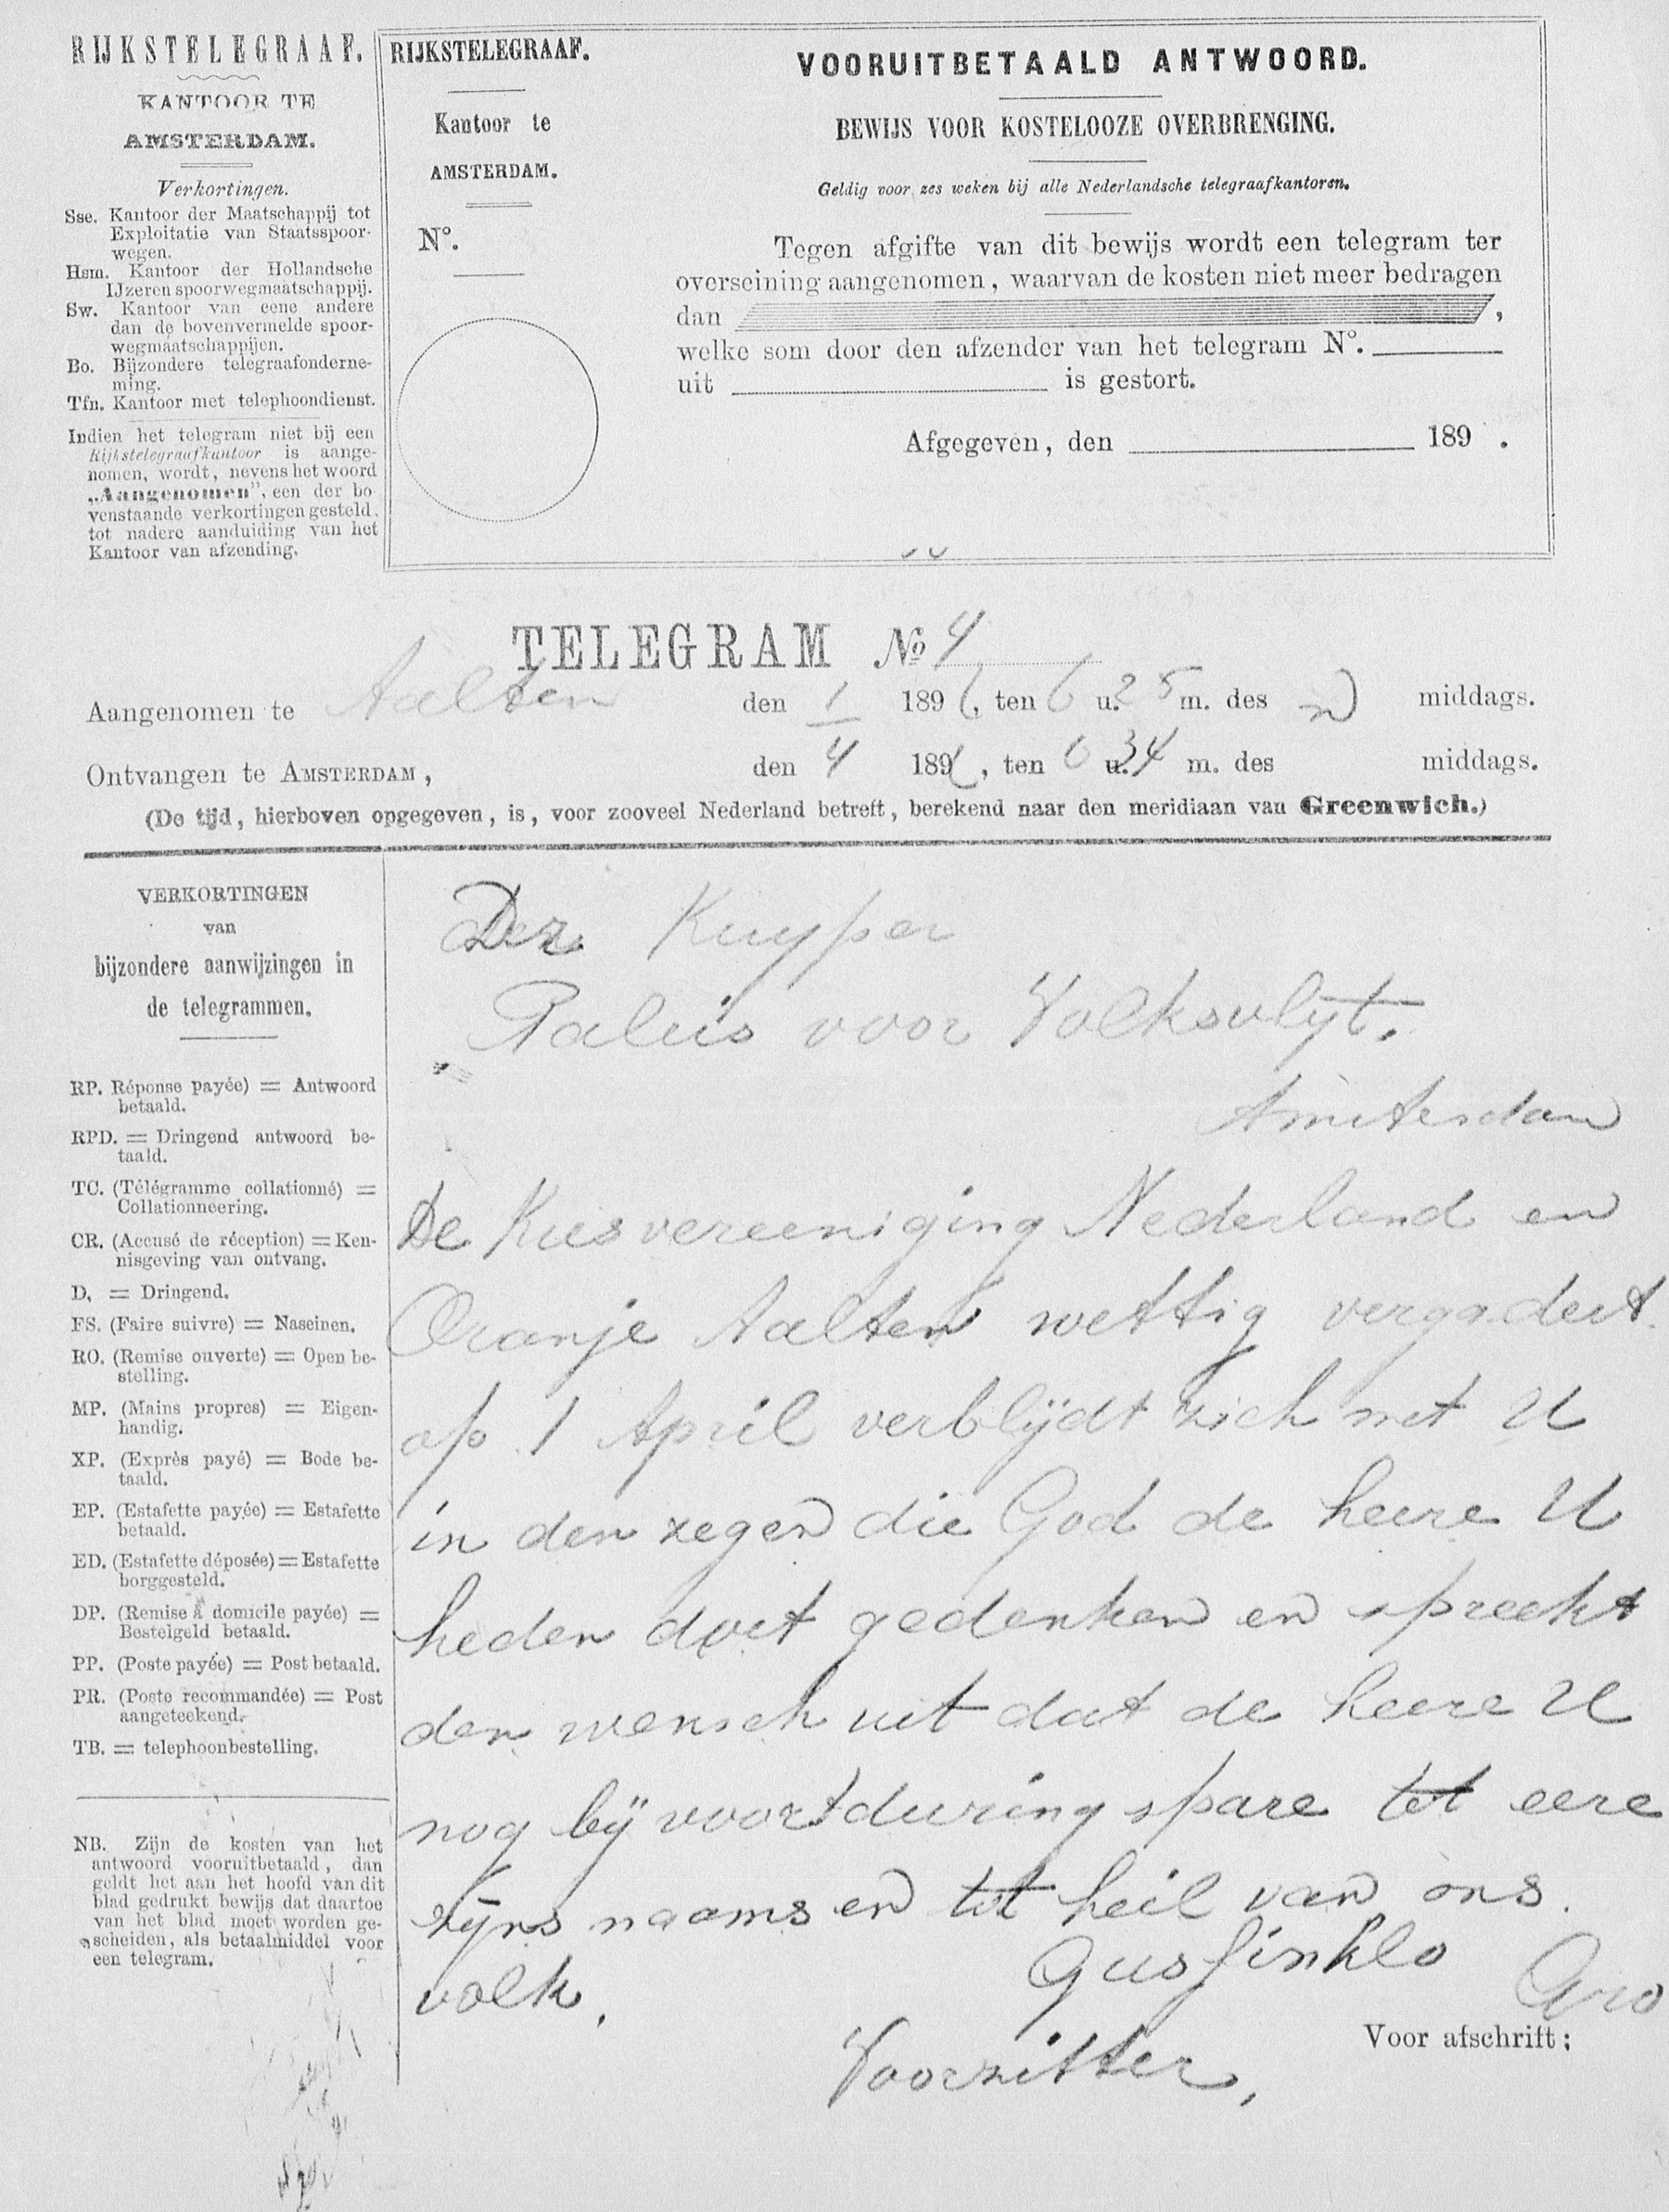 RIJKSTELEGRAAF.
KANTOOR TE
AMSTERDAM.
Verkortingen.
Sse. Kantoor der Maatschappij tot
Exploitatie van Staatsspoor-
wegen.
Hsm. Kantoor der Hollandsche
IJzeren spoorwegmaatschappij.
Sw. Kantoor van eene andere
dan de bovenvermelde spoor-
wegmaatschappijen.
Bo. Bijzondere telegraafonderne-
ming.
Tfn. Kantoor met telephoondienst.
Indien het telegram niet bij een
Rijkstelegraafkantoor is aange-
nomen, wordt, nevens het woord
„Aangenomen”, een der bo
venstaande verkortingen gesteld,
tot nadere aanduiding van het
Kantoor van afzending.
RIJKSTELEGRAAF.
Kantoor te
AMSTERDAM.
No.
VOORUITBETAALD ANTWOORD.
BEWIJS VOOR KOSTELOOZE OVERBRENGING.
Geldig voor zes weken bij alle Nederlandsche telegraafkantoren.
Tegen afgifte van dit bewijs wordt een telegram ter
overseining aangenomen, waarvan de kosten niet meer bedragen
dan ,
welke som door den afzender van het telegram No.
uit is gestort.
Afgegeven, den 189 .
TELEGRAM No 4
Aangenomen te Aalten den 1 189 , ten 6 u. 25 m. des n middags.
Ontvangen te AMSTERDAM, den 4 189 , ten 6 u. 34 m. des middags.
(De tijd, hierboven opgegeven, is, voor zooveel Nederland betreft, berekend naar den meridiaan van Greenwich.)
VERKORTINGEN
van
bijzondere aanwijzingen in
de telegrammen.
RP. Réponse payée) = Antwoord
betaald.
RPD. = Dringend antwoord be-
taald.
TC. (Télégramme collationné) =
Collationneering.
CR. (Accusé de réception) = Ken-
nisgeving van ontvang.
D. = Dringend.
FS. (Faire suivre) = Naseinen.
RO. (Remise ouverte) = Open be-
stelling.
MP. (Mains propres) = Eigen-
handig.
XP. (Exprès payé) = Bode be-
taald.
EP. (Estafette payée) = Estafette
betaald.
ED. (Estafette déposée) = Estafette
borggesteld.
DP. (Remise à domicile payée) =
Bestelgeld betaald.
PP. (Poste payée) = Post betaald.
PR. (Poste recommandée) = Post
aangeteekend.
TB. = telephoonbestelling.
NB. Zijn de kosten van het
antwoord vooruitbetaald, dan
geldt het aan het hoofd van dit
blad gedrukt bewijs dat daartoe
van het blad moet worden ge-
scheiden, als betaalmiddel voor
een telegram.
Kuyper
Paleis voor Volksvlijt.
Amsterdam
De Kiesvereeniging Nederland en
Oranje Aalten wettig vergadert
op 1 April verblijdt zich met U
in den zegen die God de heere U
heden doet gedenken en spreekt
den wensch uit dat de heere U
nog bij voortduring spare tot eere
zijns naams en tot heil van ons
volk.
Gusfinklo
Voorzitter,
Voor afschrift: